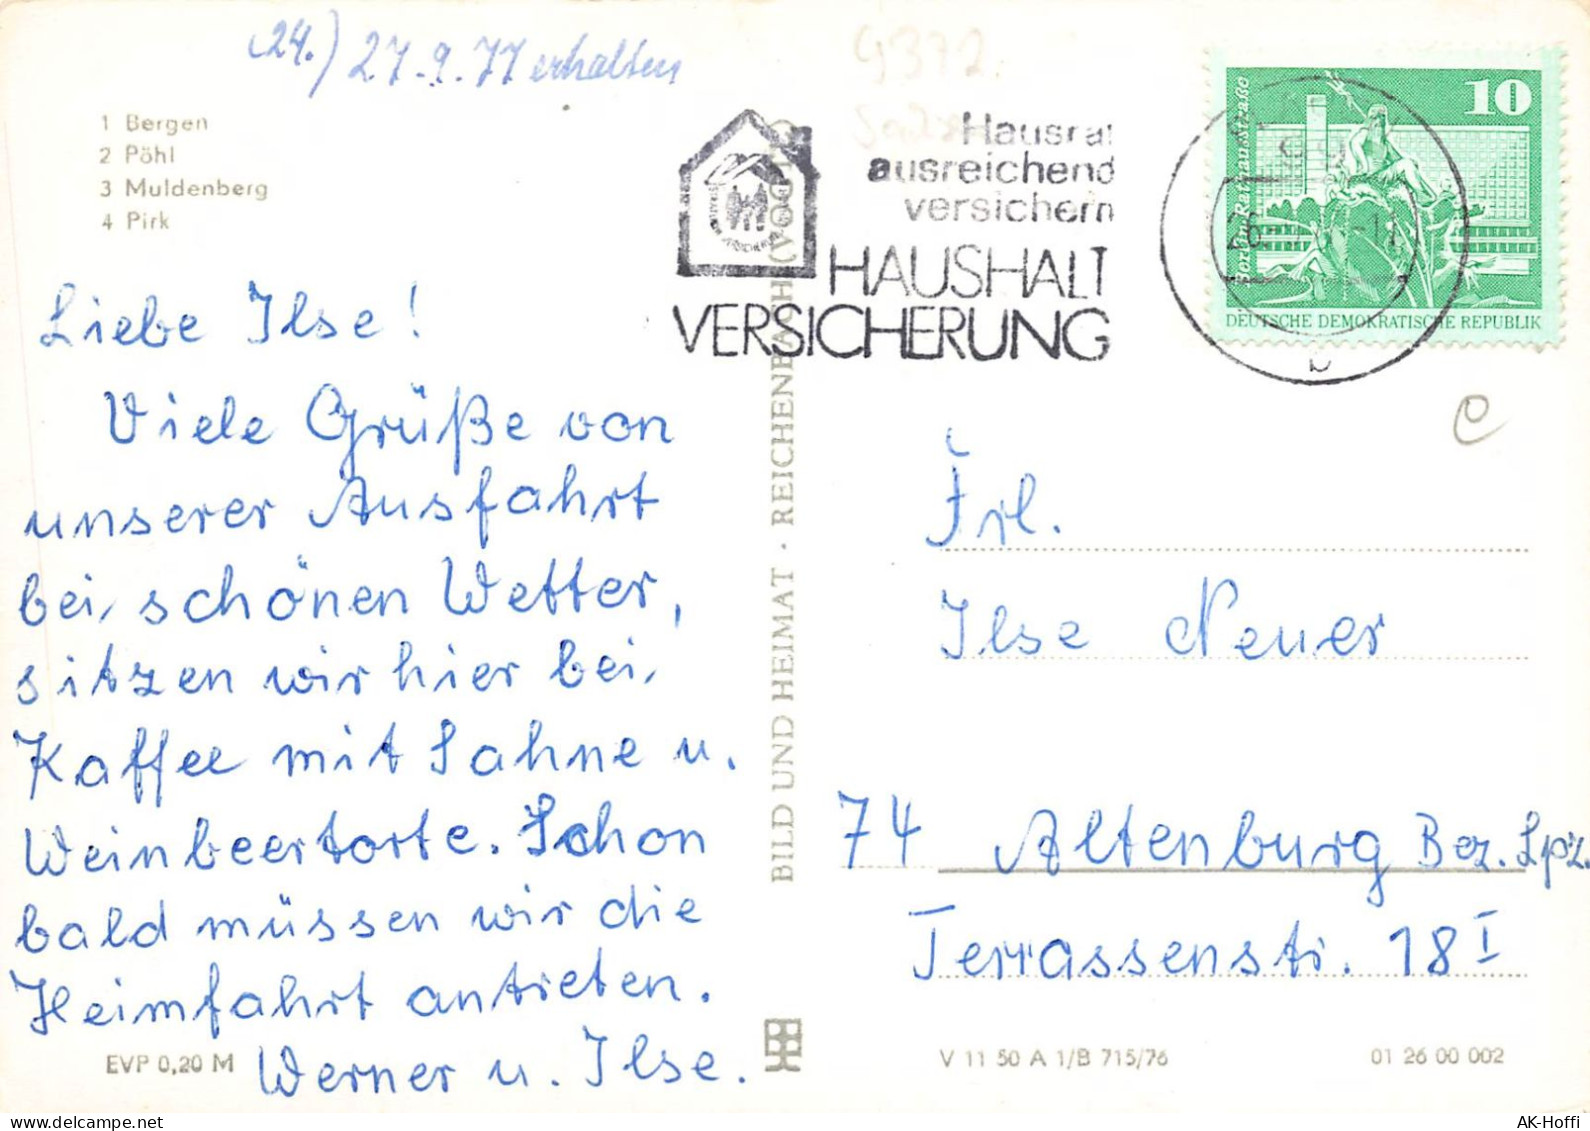 (24.) 27.9.77 erhalten
9372
1 Bergen
2 Pöhl
3 Muldenberg
4 Pirk
Liebe Ilse!
Viele Grüße von
unserer Ausfahrt
bei schönen Wetter,
sitzen wir hier bei
Kaffee mit Sahne u.
Weinbeertorte. Schon
bald müssen wir die
Heimfahrt antreten.
Werner u. Ilse.
EVP 0,20 M
BILD UND HEIMAT · REICHENBACH (VOGTL)
Hausrat
ausreichend
versichern
HAUSHALT
VERSICHERUNG
10
Berlin Rathausstraße
DEUTSCHE DEMOKRATISCHE REPUBLIK
b
e
Frl.
Ilse Neuer
74 Altenburg Bez. Lpz.
Terrassenstr. 18 I
V 11 50 A 1/B 715/76
01 26 00 002
AK-Hoffi